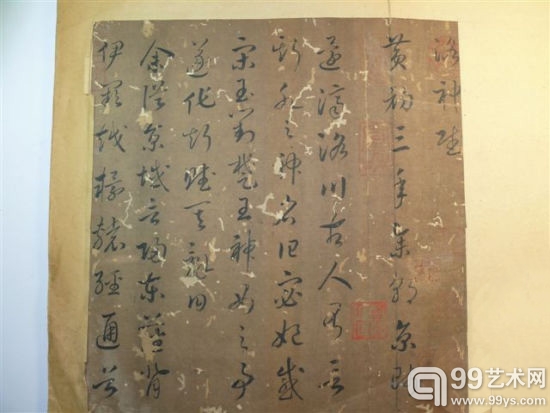 洛神賦
黄初三年余朝京師
還濟洛川古人有言
斯水之神名曰宓妃感
宋玉對楚王神女之事
遂作斯賦其詞曰
余從京城言歸東藩背
伊闕越轘轅經通谷
99艺术网
www.99ys.com